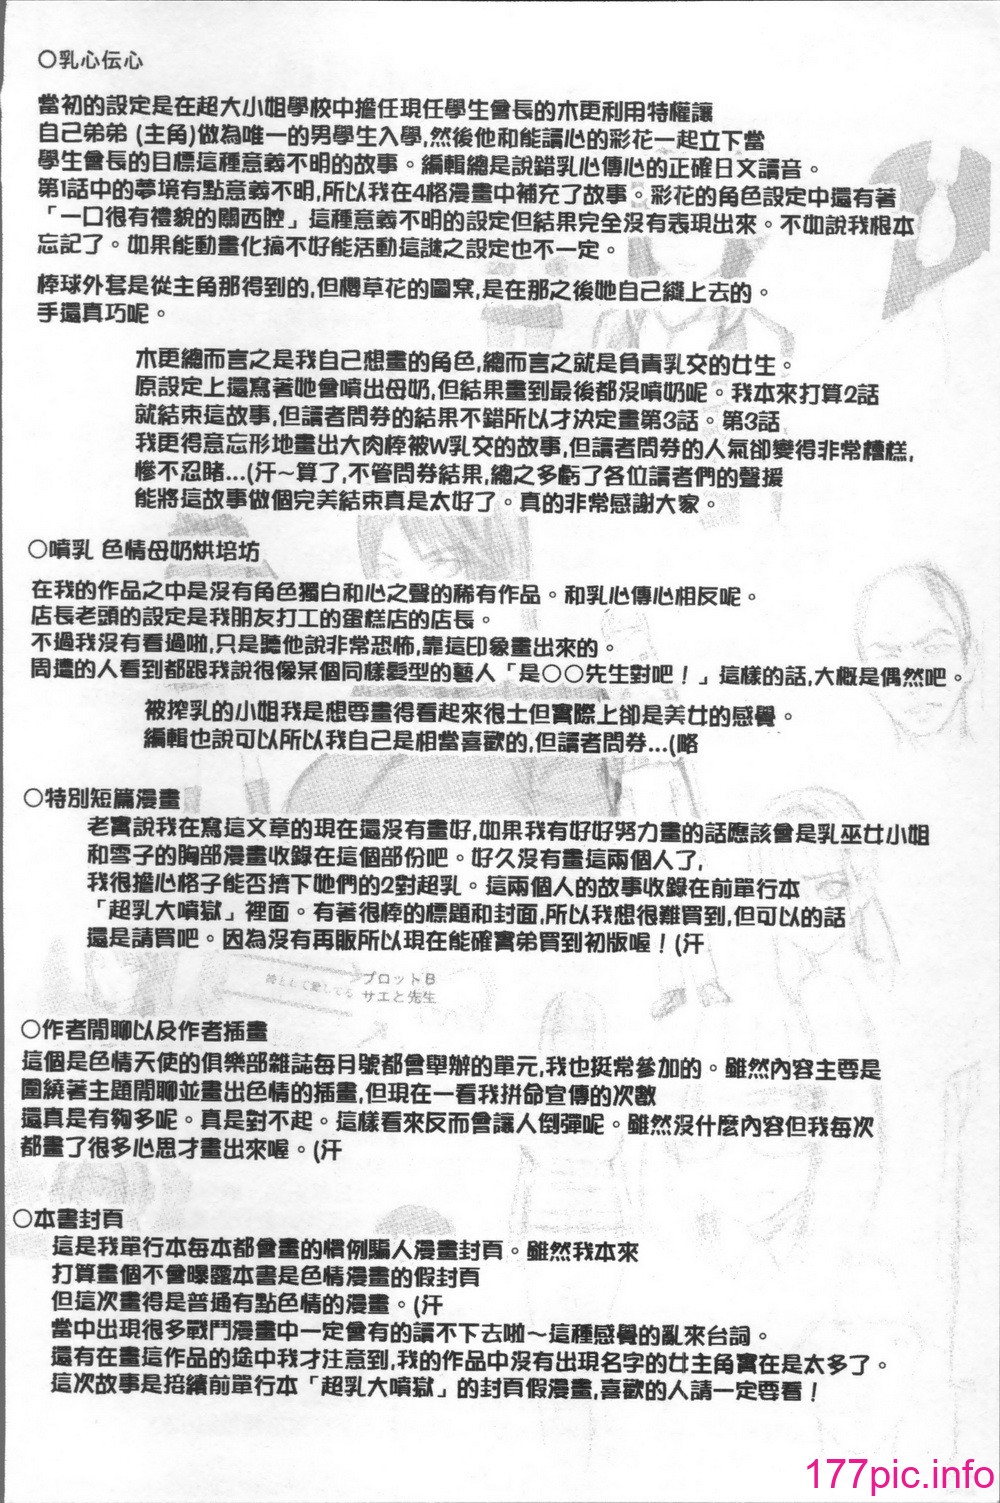 〇乳心伝心
當初的設定是在超大小姐學校中擔任現任學生會長的木更利用特權讓
自己弟弟 (主角)做為唯一的男學生入學,然後他和能讀心的彩花一起立下當
學生會長的目標這種意義不明的故事。編輯總是說錯乳心傳心的正確日文讀音。
第1話中的夢境有點意義不明,所以我在4格漫畫中補充了故事。彩花的角色設定中還有著
「一口很有禮貌的關西腔」這種意義不明的設定但結果完全沒有表現出來。不如說我根本
忘記了。如果能動畫化搞不好能活動這謎之設定也不一定。
棒球外套是從主角那得到的,但櫻草花的圖案,是在那之後她自己縫上去的。
手還真巧呢。
木更總而言之是我自己想畫的角色,總而言之就是負責乳交的女生。
原設定上還寫著她會噴出母奶,但結果畫到最後都沒噴奶呢。我本來打算2話
就結束這故事,但讀者問券的結果不錯所以才決定畫第3話。第3話
我更得意忘形地畫出大肉棒被W乳交的故事,但讀者問券的人氣卻變得非常糟糕,
慘不忍睹...(汗～算了,不管問券結果,總之多虧了各位讀者們的聲援
能將這故事做個完美結束真是太好了。真的非常感謝大家。
〇噴乳 色情母奶烘培坊
在我的作品之中是沒有角色獨白和心之聲的稀有作品。和乳心傳心相反呢。
店長老頭的設定是我朋友打工的蛋糕店的店長。
不過我沒有看過啦,只是聽他說非常恐怖,靠這印象畫出來的。
周遭的人看到都跟我說很像某個同樣髮型的藝人「是〇〇先生對吧！」這樣的話,大概是偶然吧。
被搾乳的小姐我是想要畫得看起來很土但實際上卻是美女的感覺。
編輯也說可以所以我自己是相當喜歡的,但讀者問券...(略
〇特別短篇漫畫
老實說我在寫這文章的現在還沒有畫好,如果我有好好努力畫的話應該會是乳巫女小姐
和雪子的胸部漫畫收錄在這個部份吧。好久沒有畫這兩個人了,
我很擔心格子能否擠下她們的2對超乳。這兩個人的故事收錄在前單行本
「超乳大噴獄」裡面。有著很棒的標題和封面,所以我想很難買到,但可以的話
還是請買吧。因為沒有再販所以現在能確實弟買到初版喔！(汗
時として愛してる
プロットB
サエと先生
〇作者閒聊以及作者插畫
這個是色情天使的俱樂部雜誌每月號都會舉辦的單元,我也挺常參加的。雖然內容主要是
圍繞著主題閒聊並畫出色情的插畫,但現在一看我拼命宣傳的次數
還真是有夠多呢。真是對不起。這樣看來反而會讓人倒彈呢。雖然沒什麼內容但我每次
都畫了很多心思才畫出來喔。(汗
〇本書封頁
這是我單行本每本都會畫的慣例騙人漫畫封頁。雖然我本來
打算畫個不會曝露本書是色情漫畫的假封頁
但這次畫得是普通有點色情的漫畫。(汗
當中出現很多戰鬥漫畫中一定會有的讀不下去啦～這種感覺的亂來台詞。
還有在畫這作品的途中我才注意到,我的作品中沒有出現名字的女主角實在是太多了。
這次故事是接續前單行本「超乳大噴獄」的封頁假漫畫,喜歡的人請一定要看！
177pic.info